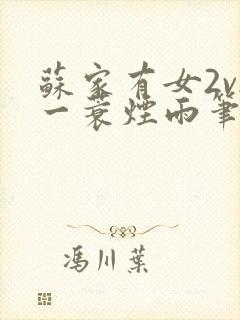 蘇家有女2v
一蓑煙雨筆
馮川葉